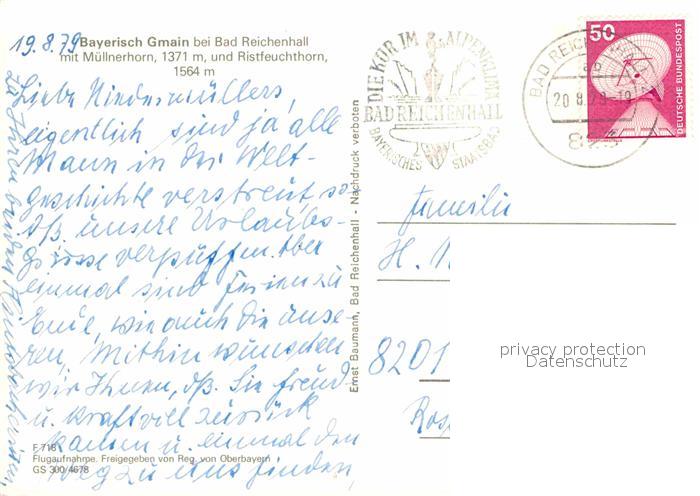 19.8.79
Bayerisch Gmain bei Bad Reichenhall
mit Müllnerhorn, 1371 m, und Ristfeuchthorn,
1564 m
Liebe Niedermüllers,
eigentlich sind ja alle
Mann in der Welt-
geschichte verstreut, so
dß unsere Urlaubs-
grüsse verpuffen. Aber
einmal sind Ferien zu
Ende, wie auch die unse-
ren. Mithin wünschen
wir Ihnen, dß Sie freud-
u. kraftvoll zurück
kamen u. einmal den
Weg zu uns finden,
F 718
Flugaufnahme. Freigegeben von Reg. von Oberbayern
GS 300/4678
Ernst Baumann, Bad Reichenhall - Nachdruck verboten
DIE KUR IM ALPENKLIMA
BAD REICHENHALL
BAYERISCHES STAATSBAD
BAD REICHENHALL
20.8.79-19
50
DEUTSCHE BUNDESPOST
Familie
H.
8201
Ros
privacy protection
Datenschutz